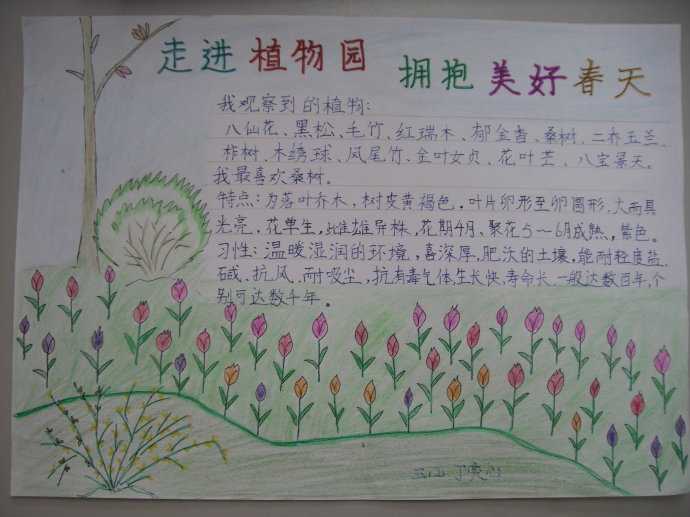 走进植物园 拥抱美好春天
我观察到的植物:
八仙花、黑松、毛竹、红瑞木、郁金香、桑树、二乔玉兰、
柞树、木绣球、凤尾竹、金叶女贞、花叶芒、八宝景天。
我最喜欢桑树。
特点:为落叶乔木,树皮黄褐色,叶片卵形至卵圆形,大而具
光亮,花单生,雌雄异株,花期4月、聚花5～6月成熟,紫色。
习性:温暖湿润的环境,喜深厚,肥沃的土壤,能耐轻度盐
碱、抗风、耐吸尘,抗有毒气体生长快,寿命长,一般达数百年,个
别可达数千年。